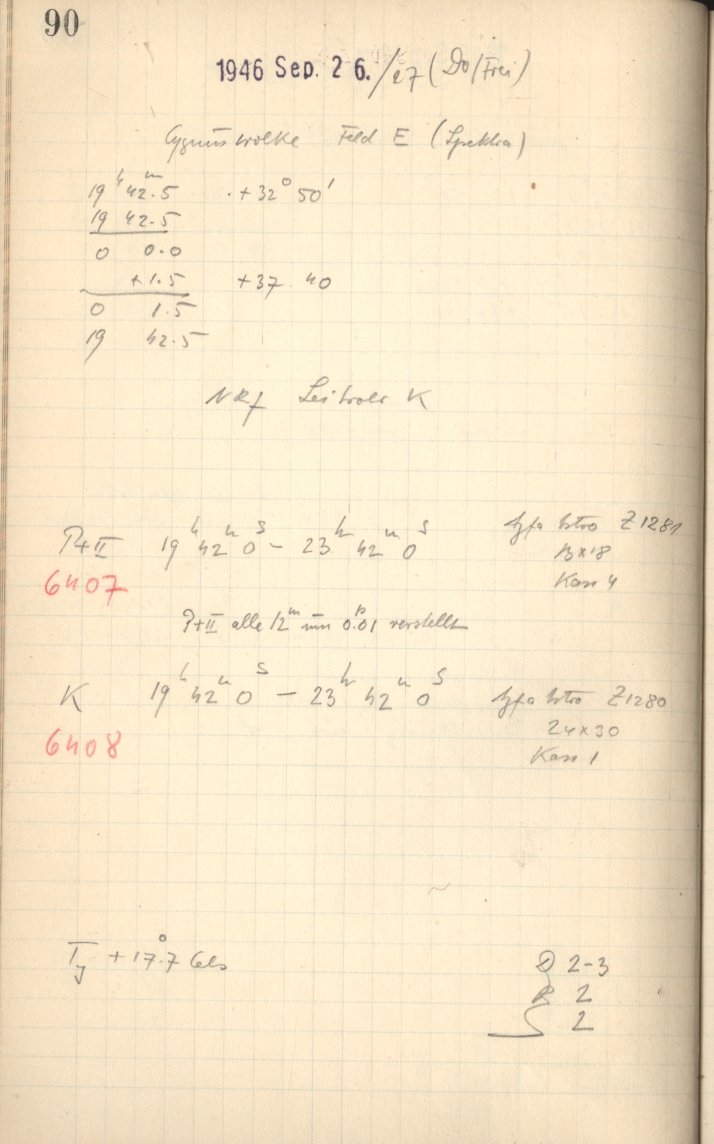 90
1946 Sep. 26./27 (Do/Frei)
Cygnuswolke Feld E (Spektra)
19ʰ 42ᵐ.5 +32° 50'
19 42.5
0 0.0
+1.5 +37 40
0 1.5
19 42.5
Leitrohr K
P+II 19ʰ 42ᵐ 0ˢ – 23ʰ 42ᵐ 0ˢ Agfa Astro Z1281
6407 13×18
Kass 4
P+II alle 12ᵐ um 0ᵖ.01 verstellt
K 19ʰ 42ᵐ 0ˢ – 23ʰ 42ᵐ 0ˢ Agfa Astro Z1280
6408 24×30
Kass 1
+17°.7 Cels
D 2-3
R 2
2